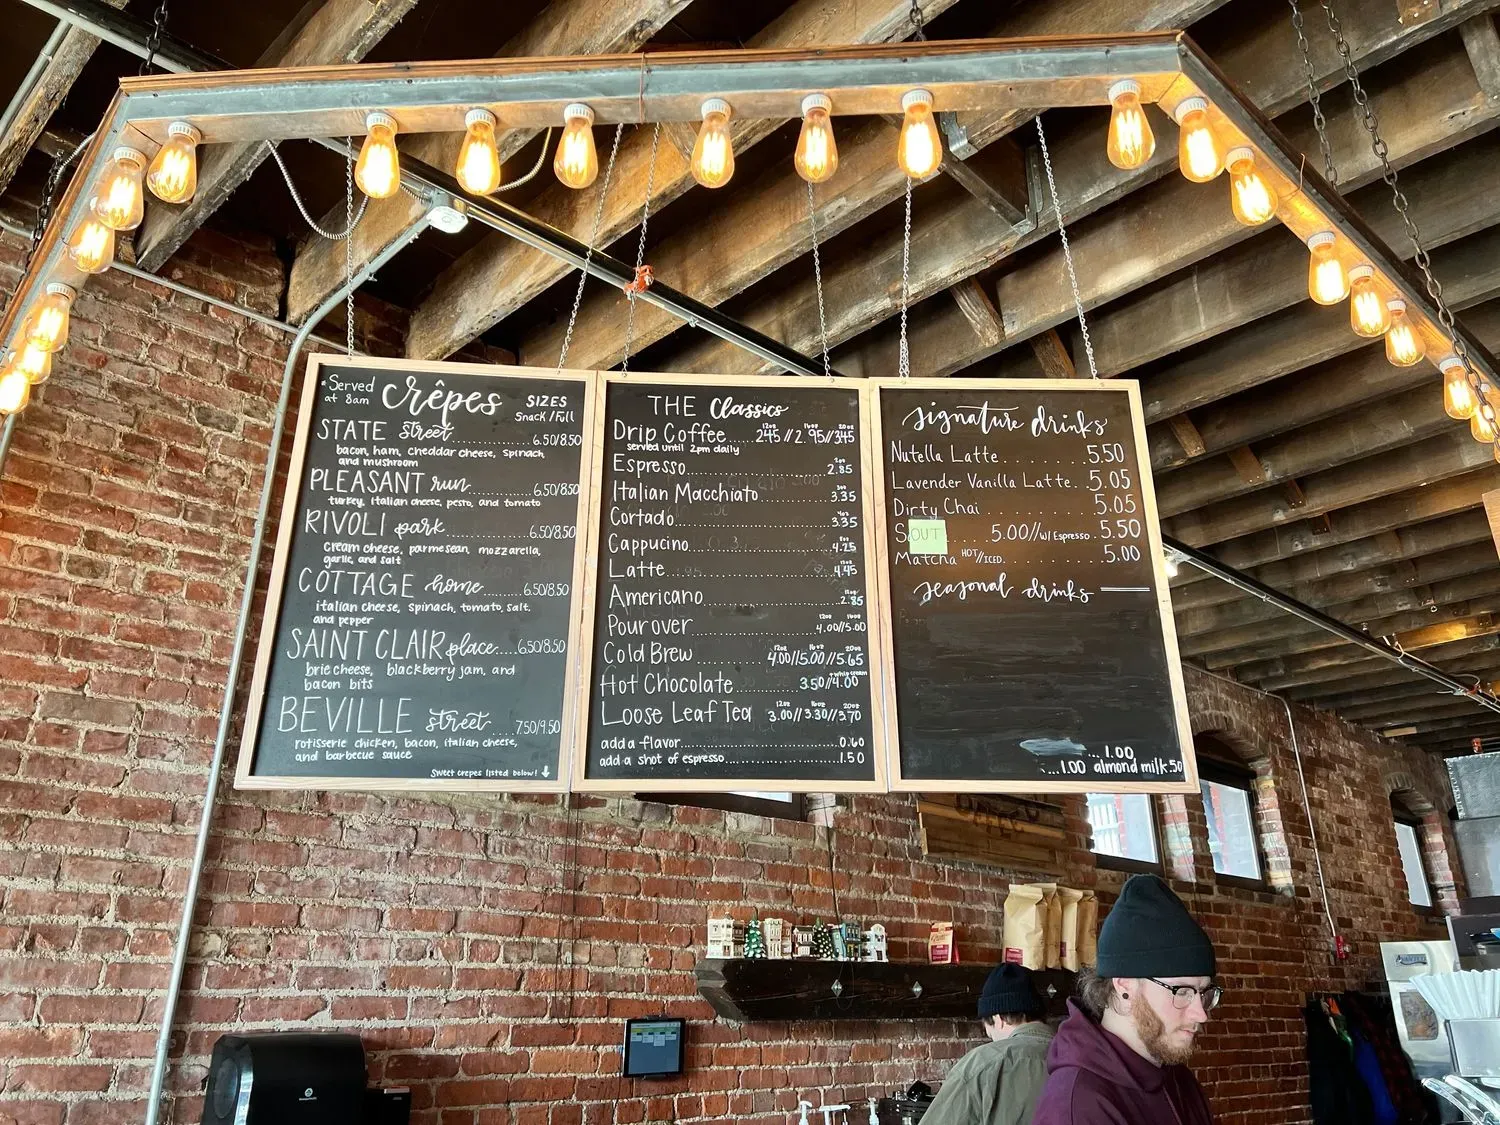 *Served at 8am
Crêpes
SIZES
Snack/Full
STATE street..........6.50/8.50
bacon, ham, cheddar cheese, spinach,
and mushroom
PLEASANT run..........6.50/8.50
turkey, italian cheese, pesto, and tomato
RIVOLI park..........6.50/8.50
cream cheese, parmesan, mozzarella,
garlic, and salt
COTTAGE home..........6.50/8.50
italian cheese, spinach, tomato, salt,
and pepper
SAINT CLAIR place.....6.50/8.50
brie cheese, blackberry jam, and
bacon bits
BEVILLE street.....7.50/9.50
rotisserie chicken, bacon, italian cheese,
and barbecue sauce
Sweet crepes listed below! ↓
THE Classics
12oz 16oz 20oz
Drip Coffee....245//2.95//345
served until 2pm daily
Espresso..........2.85
Italian Macchiato..........3.35
Cortado..........3.35
Cappucino..........4.25
Latte..........4.45
Americano..........2.85
12oz 16oz
Pour over..........4.00/5.00
12oz 16oz 20oz
Cold Brew..........4.00//5.00//5.65
+whip cream
Hot Chocolate..........3.50/4.00
12oz 16oz 20oz
Loose Leaf Tea 3.00//3.30//3.70
add a flavor..........0.60
add a shot of espresso..........1.50
signature drinks
Nutella Latte.......5.50
Lavender Vanilla Latte..5.05
Dirty Chai.......5.05
S OUT ....5.00//w/ Espresso.5.50
Matcha HOT//ICED.......5.00
seasonal drinks
...1.00
...1.00 almond milk.50